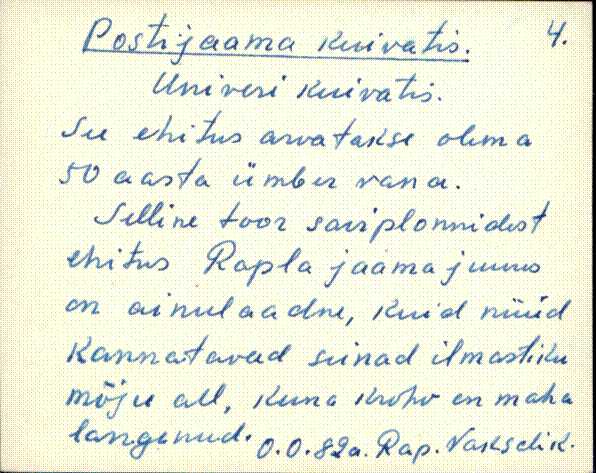 Postijaama kuivatis. 4.
Univeri kuivatis.
See ehitus arvatakse olema
50 aasta ümber vana.
Selline toor saviplonnidest
ehitus Rapla jaama juures
on ainulaadne, kuid nüüd
kannatavad seinad ilmastiku
mõju all, kuna krohv on maha
langenud. 0.0.82a. Rap. Vakselik.